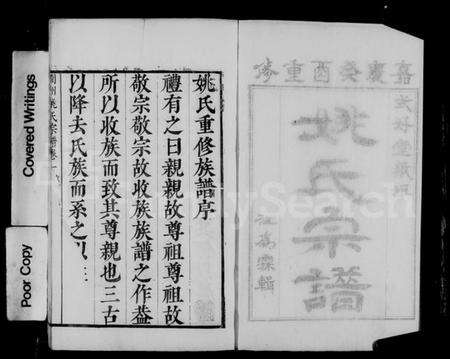 嘉慶癸酉重修
姚氏宗譜
姚氏重修族譜序
禮有之曰親親故尊祖尊祖故
敬宗敬宗故收族族譜之作葢
所以收族而致其尊親也三古
以降去氏族而系之以
Covered Writings
Poor Copy